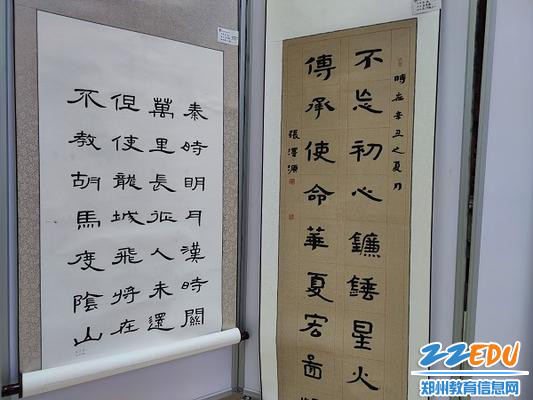 秦時明月漢時關
萬里長征人未還
但使龍城飛將在
不教胡馬度陰山
時在辛丑之夏月
不忘初心鐮錘星火
傳承使命華夏宏圖
張澤源
ZZEDU
郑州教育信息网